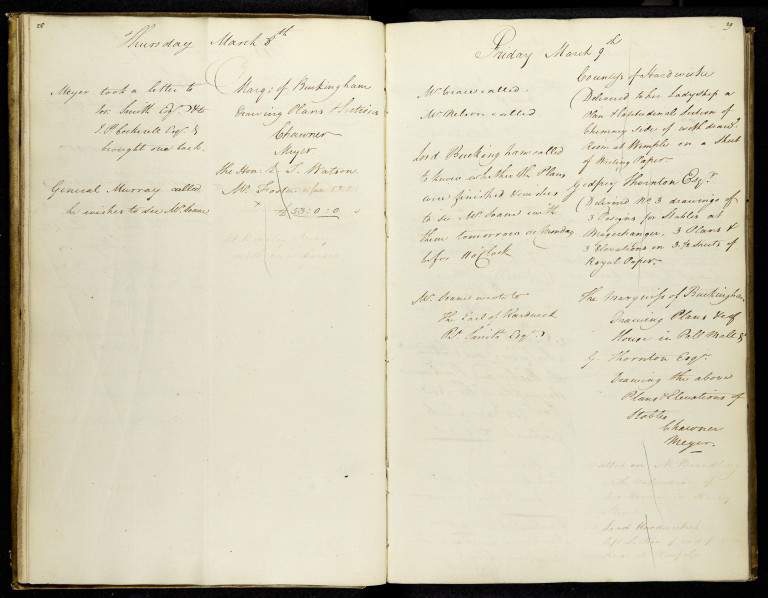 28
Thursday March 8th
Meyer took a letter to
Jos. Smith Esqr. &to
S. P. Cockerell Esqr. &
brought one back.
General Murray called
he wishes to see Mr. Soane
Marqs: of Buckingham
Drawing Plans & Section
Chawner
Meyer
The Hon: S. T. Watson
Mr. Soane
£ 53 : 0 : 0
29
Friday March 9th
Mr. Crace called.
Mr. Nelson called
Lord Buckingham called
to know whether the Plans
were finished & wishes
to see Mr. Soane with
them tomorrow or Monday
before 11 oClock
Mr. Soane wrote to
The Earl of Hardwick
Rt. Smith Esqr.
Countess of Hardwicke
Delivered to her Ladyship a
Plan & Longitudinal Section of
Chimney Side of with drawg.
Room at Wimple on a Sheet
of Writing Paper
Godfrey Thornton Esqr.
Delivered No 3 drawings of
3 Designs for Stables at
Mogerhanger. 3 Plans &
3 Elevations on 3 Sheets of
Royal Paper.
The Marquiss of Buckingham
Drawing Plans &c of
House in Pall Mall &
G. Thornton Esqr.
Drawing the above
Plans & Elevations of
Stables
Chawner
Meyer.